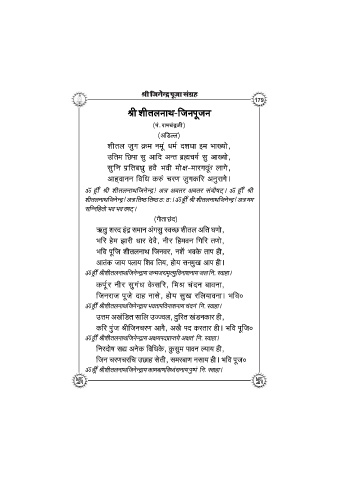 श्री जिनेन्द्र पूजा संग्रह
179
श्री शीतलनाथ-जिनपूजन
(पं. रामचंद्रजी)
(अडिल्ल)
शीतल जुग क्रम नमूं धर्म दशधा इम भाख्यो,
उतिम छिमा सु आदि अन्त ब्रह्मचर्य सु आख्यो,
सुनि प्रतिबधु हवै भवी मोक्ष-मारगकूं लागे,
आहवानन विधि करुं चरण जुगकरि अनुरागे।
ॐ ह्रीं श्री शीतलनाथजिनेन्द्र! अत्र अवतर अवतर संवौषट्। ॐ ह्रीं श्री
शीतलनाथजिनेन्द्र! अत्र तिष्ठ तिष्ठ ठः ठः। ॐ ह्रीं श्री शीतलनाथजिनेन्द्र! अत्र मम
सन्निहितो भव भव वषट्।
(गीताछंद)
ऋतु शरद इंद्र समान अंगसु स्वच्छ शीतल अति घणो,
भरि हेम झारी धार देवै, नीर हिमवन गिरि तणो,
भवि पूजि शीतलनाथ जिनवर, नशैं भवके ताप ही,
आतंक जाय पलाय शिव तिय, होय सनमुख आप ही।
ॐ ह्रीं श्रीशीतलनाथजिनेन्द्राय जन्मजरामृत्युविनाशनाय जलं नि. स्वाहा।
कर्पूर नीर सुगंध केसरि, मिश्र चंदन बावना,
जिनराज पूजे दाह नासे, होय सुख रलियावना। भवि०
ॐ ह्रीं श्रीशीतलनाथजिनेन्द्राय भवतापविनाशनाय चंदनं नि. स्वाहा।
उत्तम अखंडित सालि उज्ज्वल, दुरित खंडनकार ही,
करि पुंज श्रीजिनचरण आगै, अखै पद करतार ही। भवि पूजि०
ॐ ह्रीं श्रीशीतलनाथजिनेन्द्राय अक्षयपदप्राप्तये अक्षतं नि. स्वाहा।
निरदोष सद्य अनेक विधिके, कुसुम पावन ल्याय ही,
जिन चरणचरचि उछाह सेती, समरबाण नसाय ही। भवि पूज०
ॐ ह्रीं श्रीशीतलनाथजिनेन्द्राय कामबाणविध्वंसनाय पुष्पं नि. स्वाहा।